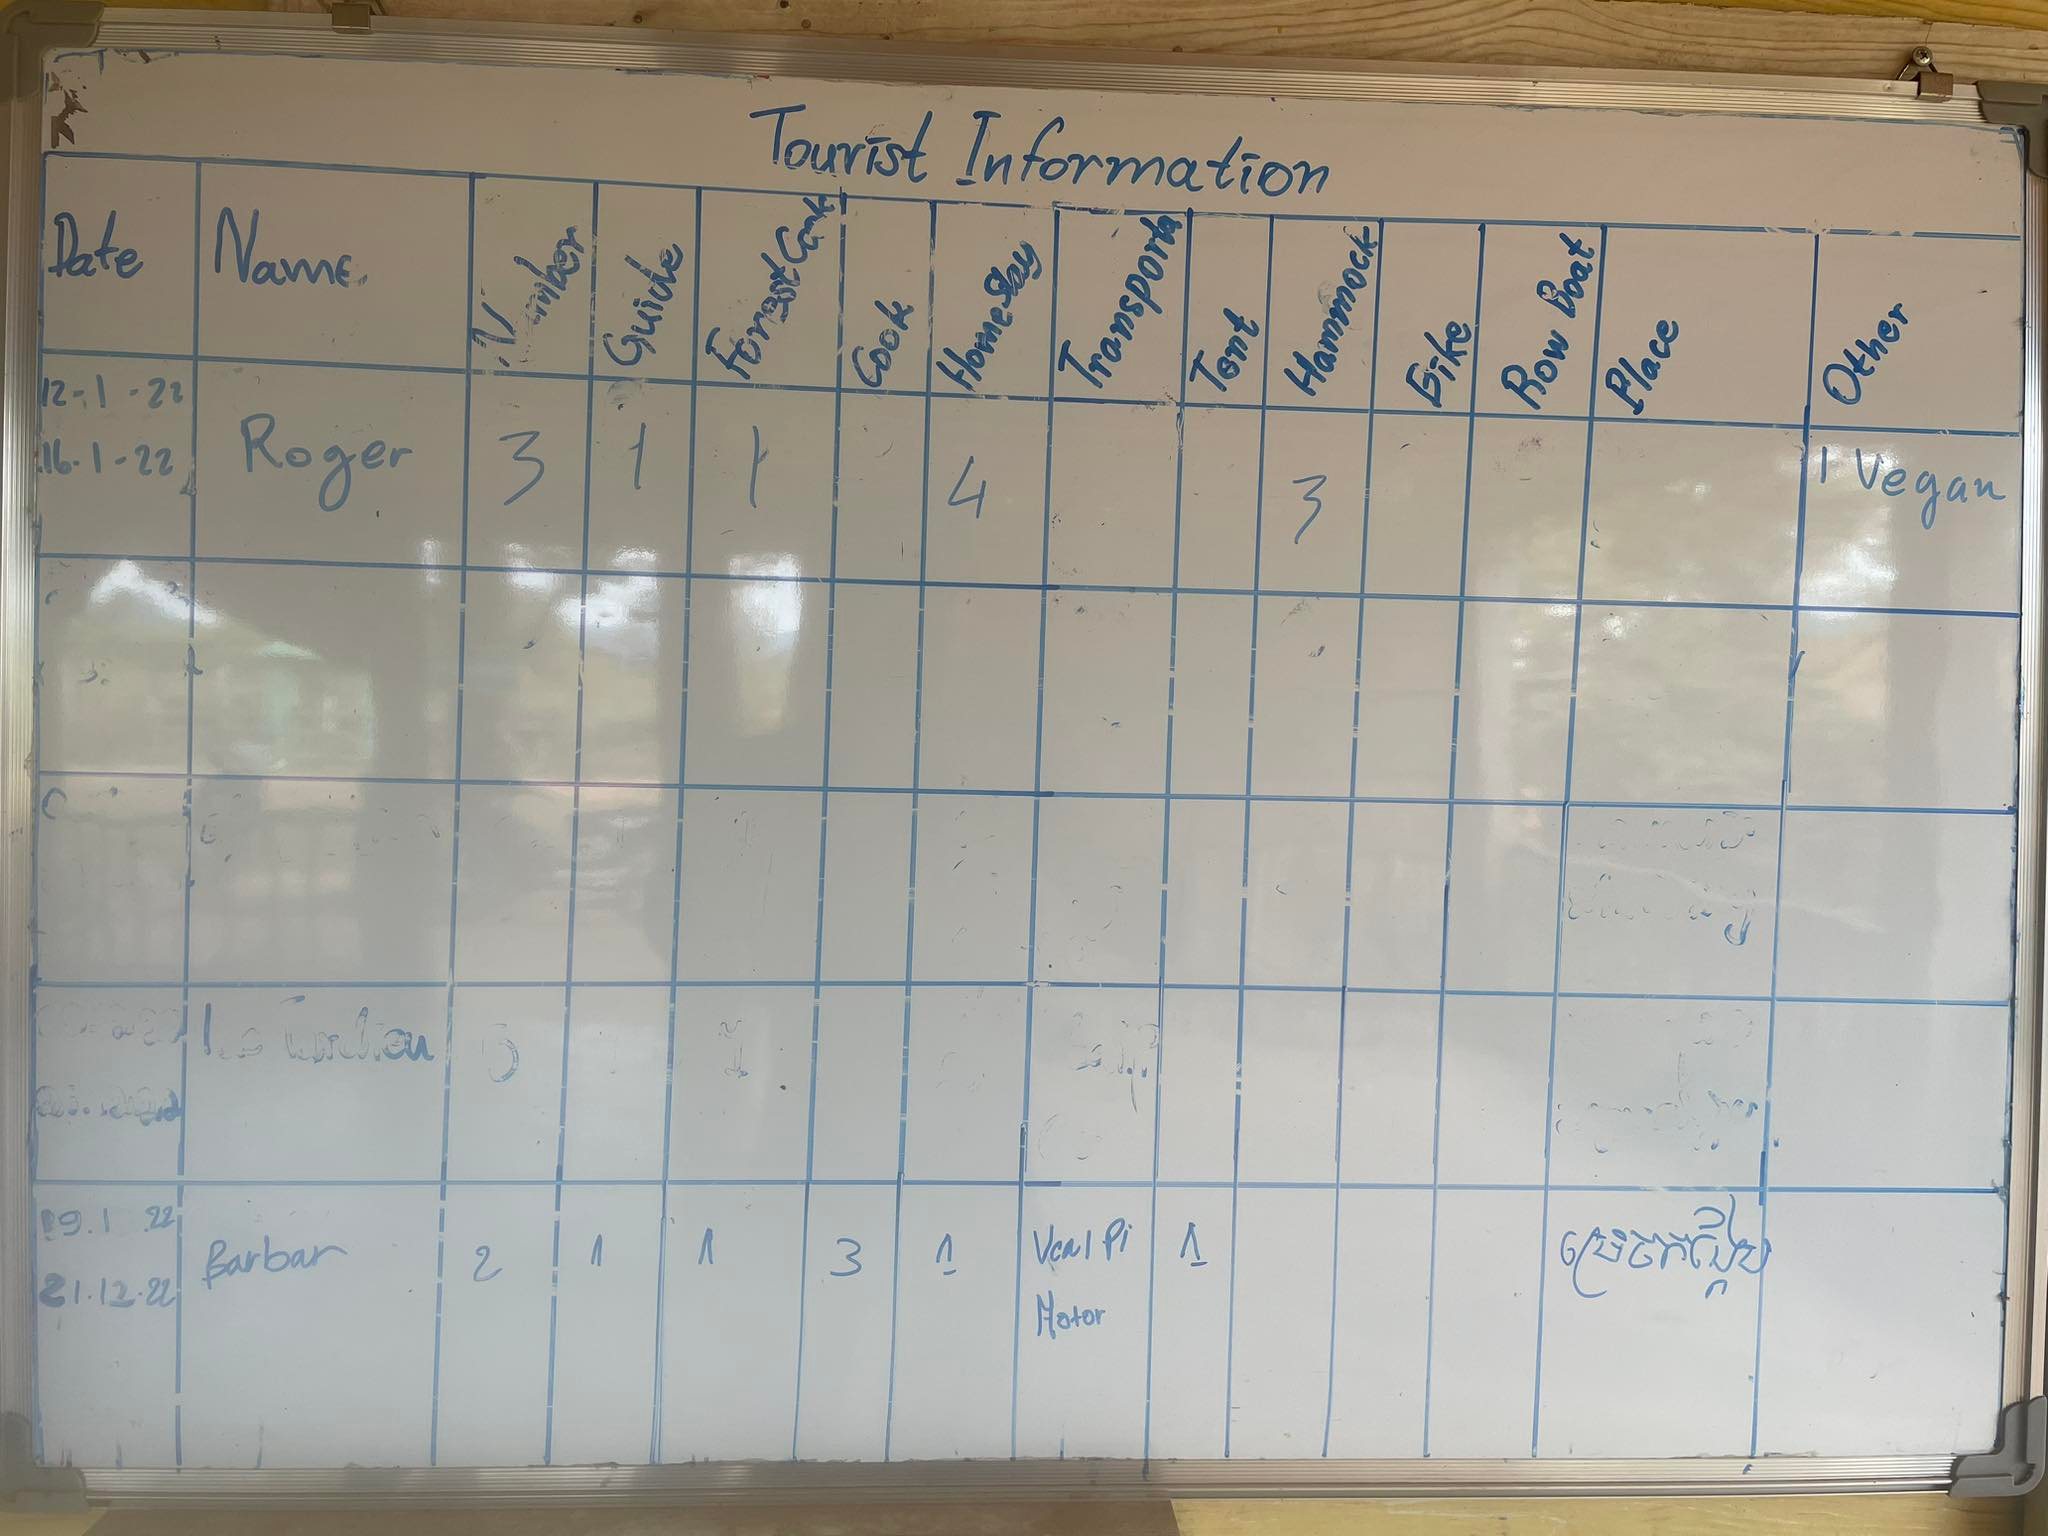 Tourist Information
Date Name Number Guide Forest Cook Home Stay Transport Tent Hammock Bike Row Boat Place Other
12-1-22
16-1-22 Roger 3 1 1 4 3 1 Vegan
19.1.22
21.12.22 Barbar 2 1 1 3 1 1
Motor